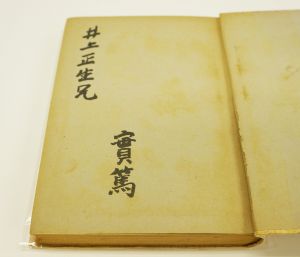 井上正生兄
實篤